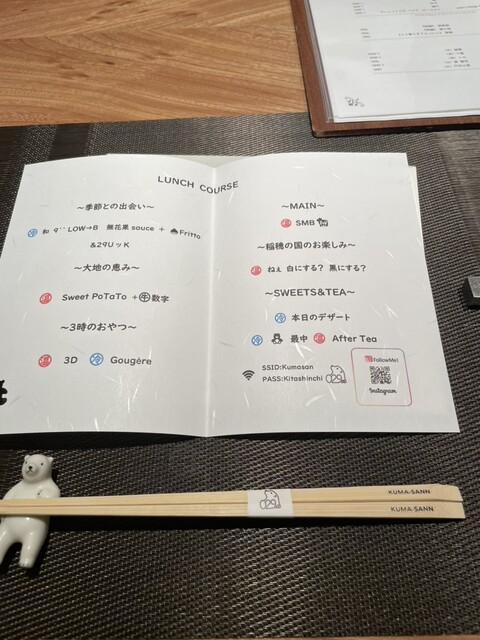 LUNCH COURSE
～季節との出会い～
冷 和 9゛LOW→B 無花果 sauce + Fritto
&29UッK
～大地の恵み～
温 Sweet PoTaTo +牛数字
～3時のおやつ～
温 3D 冷 Gougère
～MAIN～
温 SMB
～稲穂の国のお楽しみ～
温 ねぇ 白にする? 黒にする?
～SWEETS&TEA～
冷 本日のデザート
冷 最中 温 After Tea
SSID:Kumasan
PASS:Kitashinchi
129
FollowMe!
Instagram
129
KUMA-SANN
KUMA-SANN